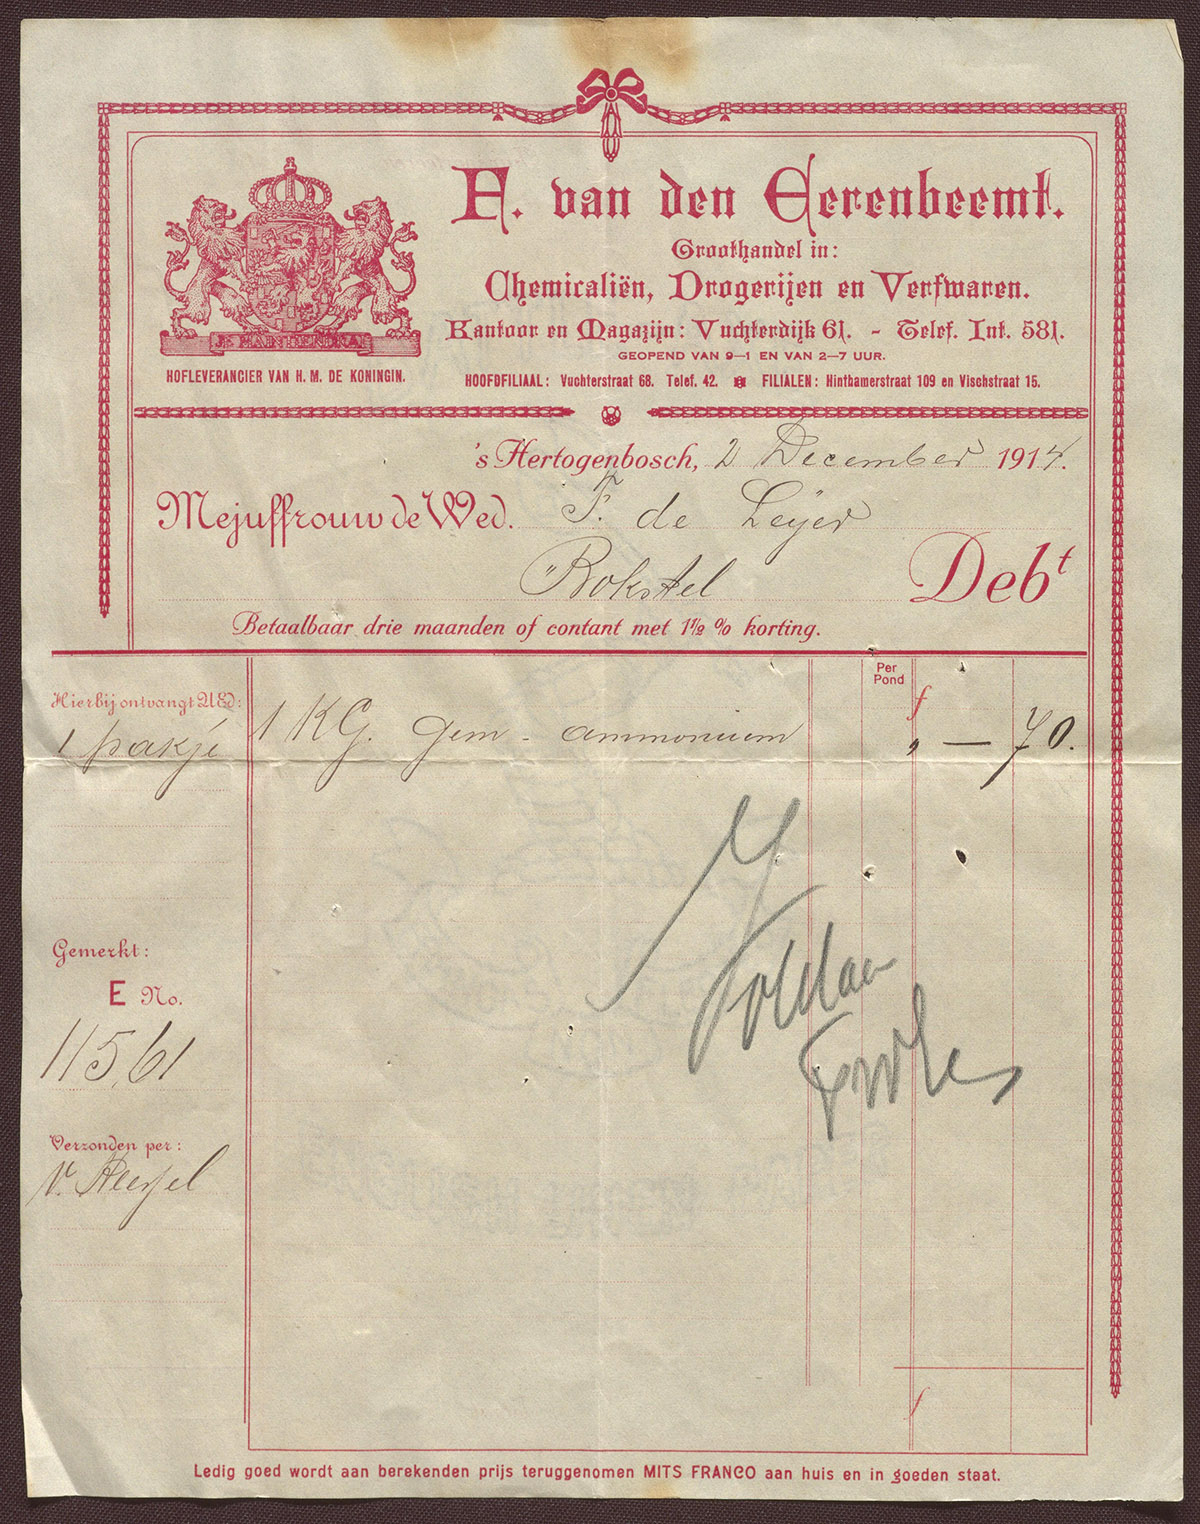 A. van den Eerenbeemt.
Groothandel in:
Chemicaliën, Drogerijen en Verfwaren.
Kantoor en Magazijn: Vuchterdijk 61. - Telef. Int. 581.
GEOPEND VAN 9—1 EN VAN 2—7 UUR.
JE MAINTIENDRAI
HOFLEVERANCIER VAN H. M. DE KONINGIN.
HOOFDFILIAAL: Vuchterstraat 68. Telef. 42. FILIALEN: Hinthamerstraat 109 en Vischstraat 15.
's Hertogenbosch, 2 December 1914.
Mejuffrouw de Wed. F. de Leijer
Bokstel
Debt
Betaalbaar drie maanden of contant met 1 1/2 % korting.
Per
Pond
f
Hierbij ontvangt UEd:
1 pakje 1 KG. gem - ammonium „ — 70.
Gemerkt:
E No.
11561
Verzonden per:
v.
Voldaan
f
Ledig goed wordt aan berekenden prijs teruggenomen MITS FRANCO aan huis en in goeden staat.